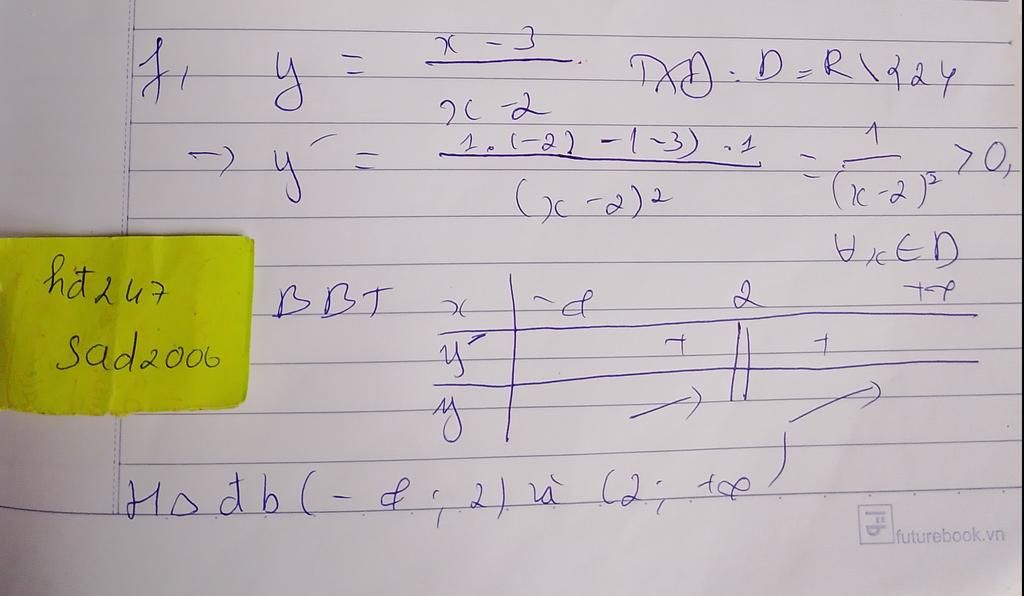 f, y = x - 3 / x - 2 TXĐ : D = R \ {2}
→ y' = 1.(-2) - (-3).1 / (x - 2)2 = 1 / (x - 2)² > 0,
∀x ∈ D
hđ247
sad2006
BBT x -∞ 2 +∞
y' + +
y
HS đb (-∞ ; 2) và (2 ; +∞)
futurebook.vn